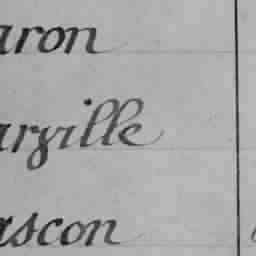 aron
arville
ascon